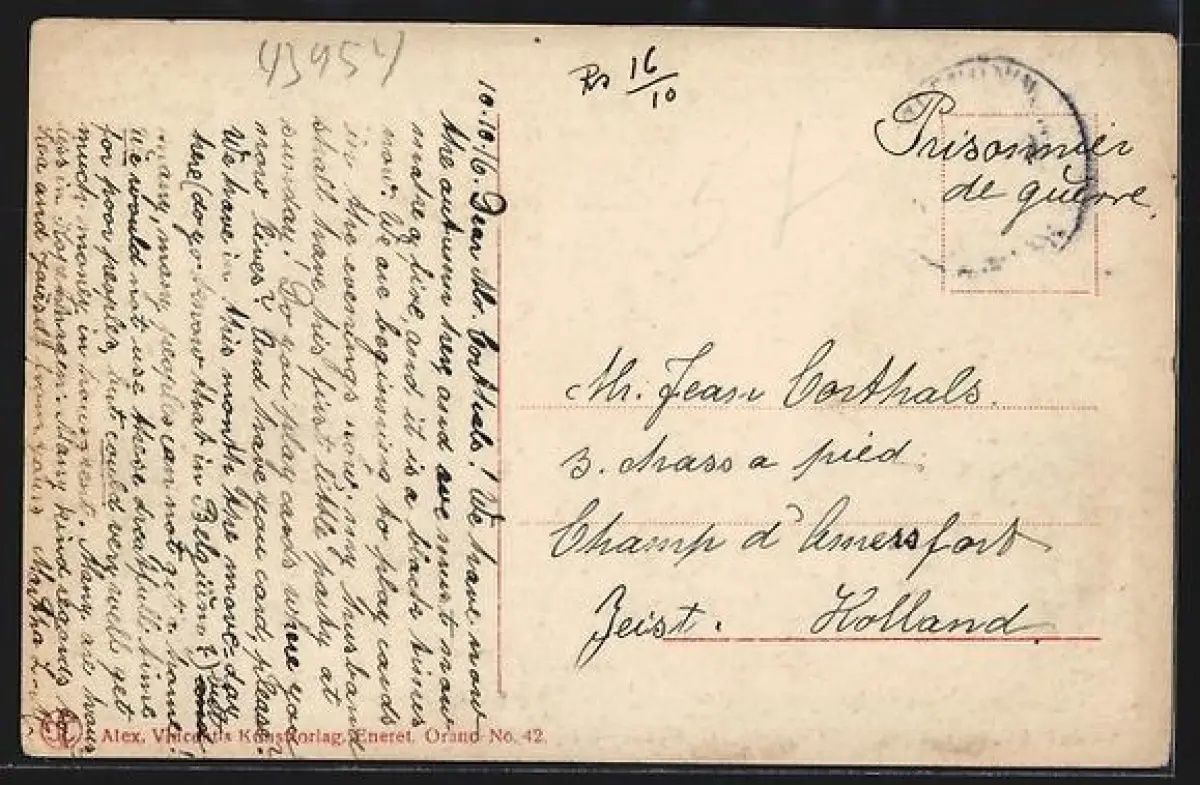 43954
Rs 16/10
Prisonnier
de guerre.
Mr. Jean Corthals.
3. chass a pied.
Champ d'Amersfort
Zeist. Holland.
10.10.16. Dear Mr. Corthals! We have now
the autumn here, and we must now
make of fire, and it is a black times
now. We are beginning to play cards
in the evenings now, my husband
shall have his first little party at
sunday. Do you play cards where you
now lives? And have you card, please?
We have in this month the move-day
here (do you know that in Belgium?) but
many, many peoples can not get a home!
We would not use these dreatfull time
for poor peoples, but could very well get
much money in house rent. Many are hous
less in . Many kind regards to
and yourself from yours Martha
Alex. Vincents Kunstforlag. Eneret. Orano No. 42.